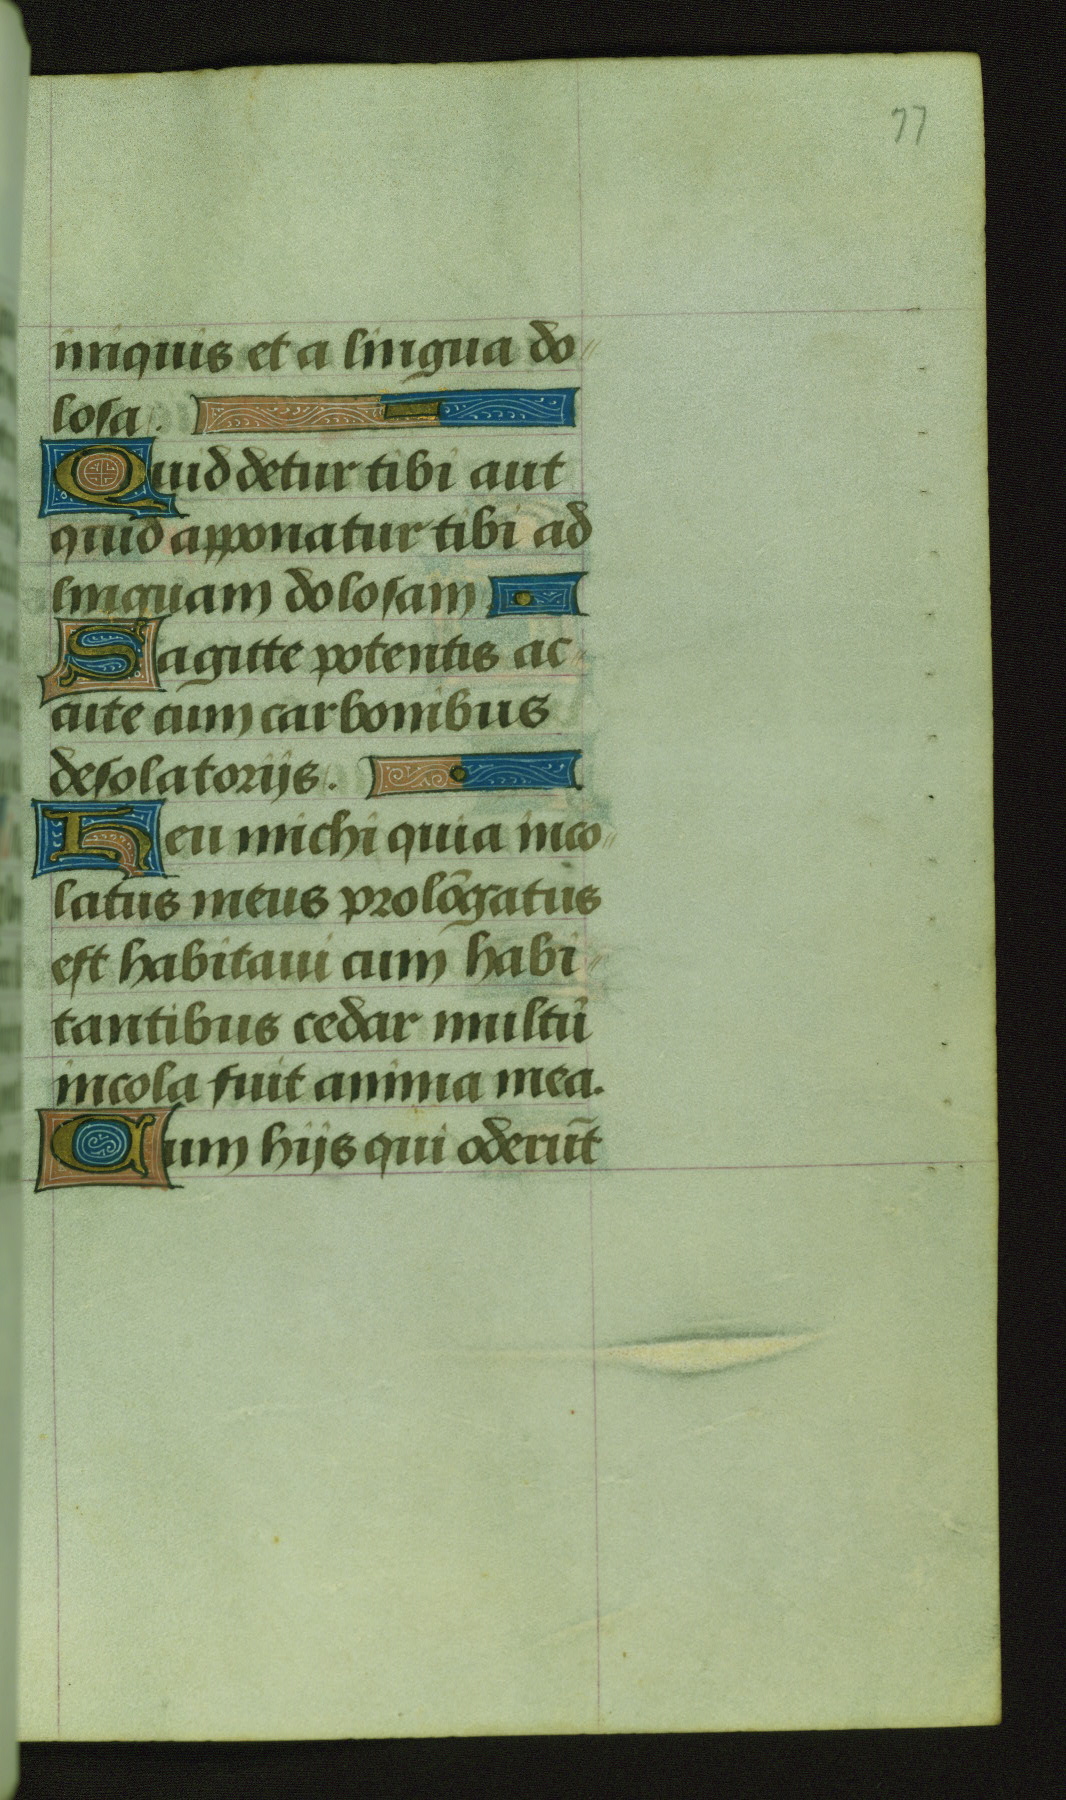 77
iniquis et a lingua do
losa.
Quid detur tibi aut
quid apponatur tibi ad
linguam dolosam
Sagitte potentis ac
cute cum carbonibus
desolatorijs.
Heu michi quia inco
latus meus prolōgatus
est habitaui cum habi
tantibus cedar multū
incola fuit anima mea.
Cum hijs qui oderūt